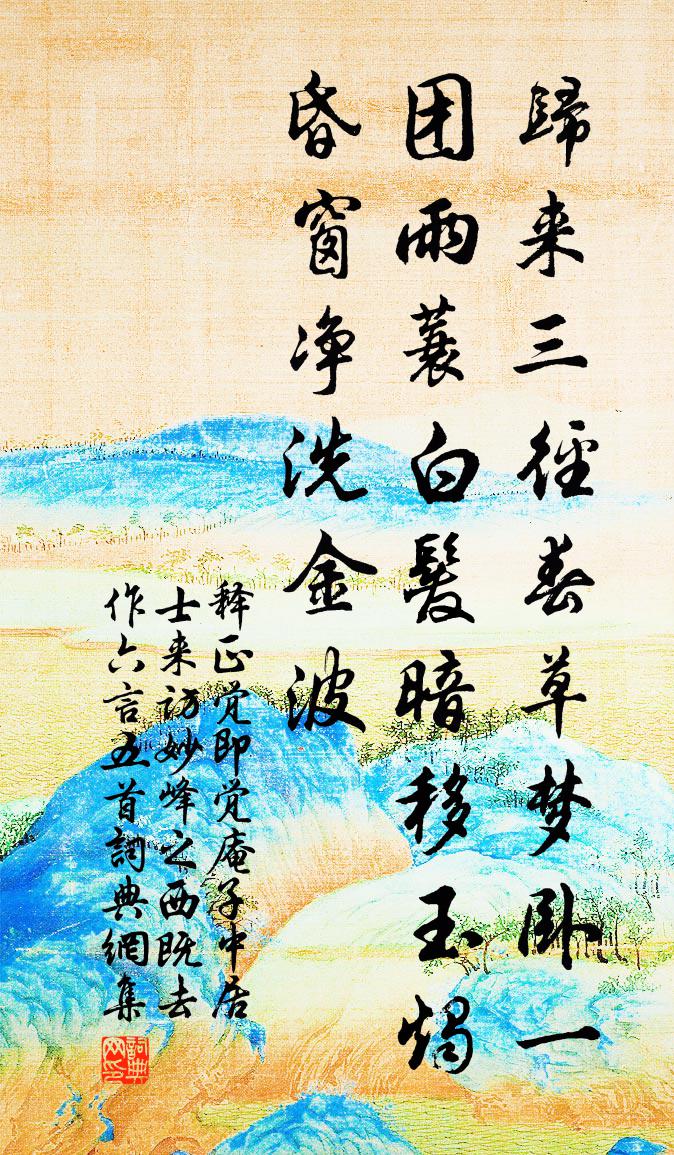 歸来三徑春草梦卧一
团雨蓑白髮暗移玉燭
昏窗净洗金波
释正觉即觉庵子中居
士来访妙峰之西既去
作六言五首詞典網集
詞典
网印